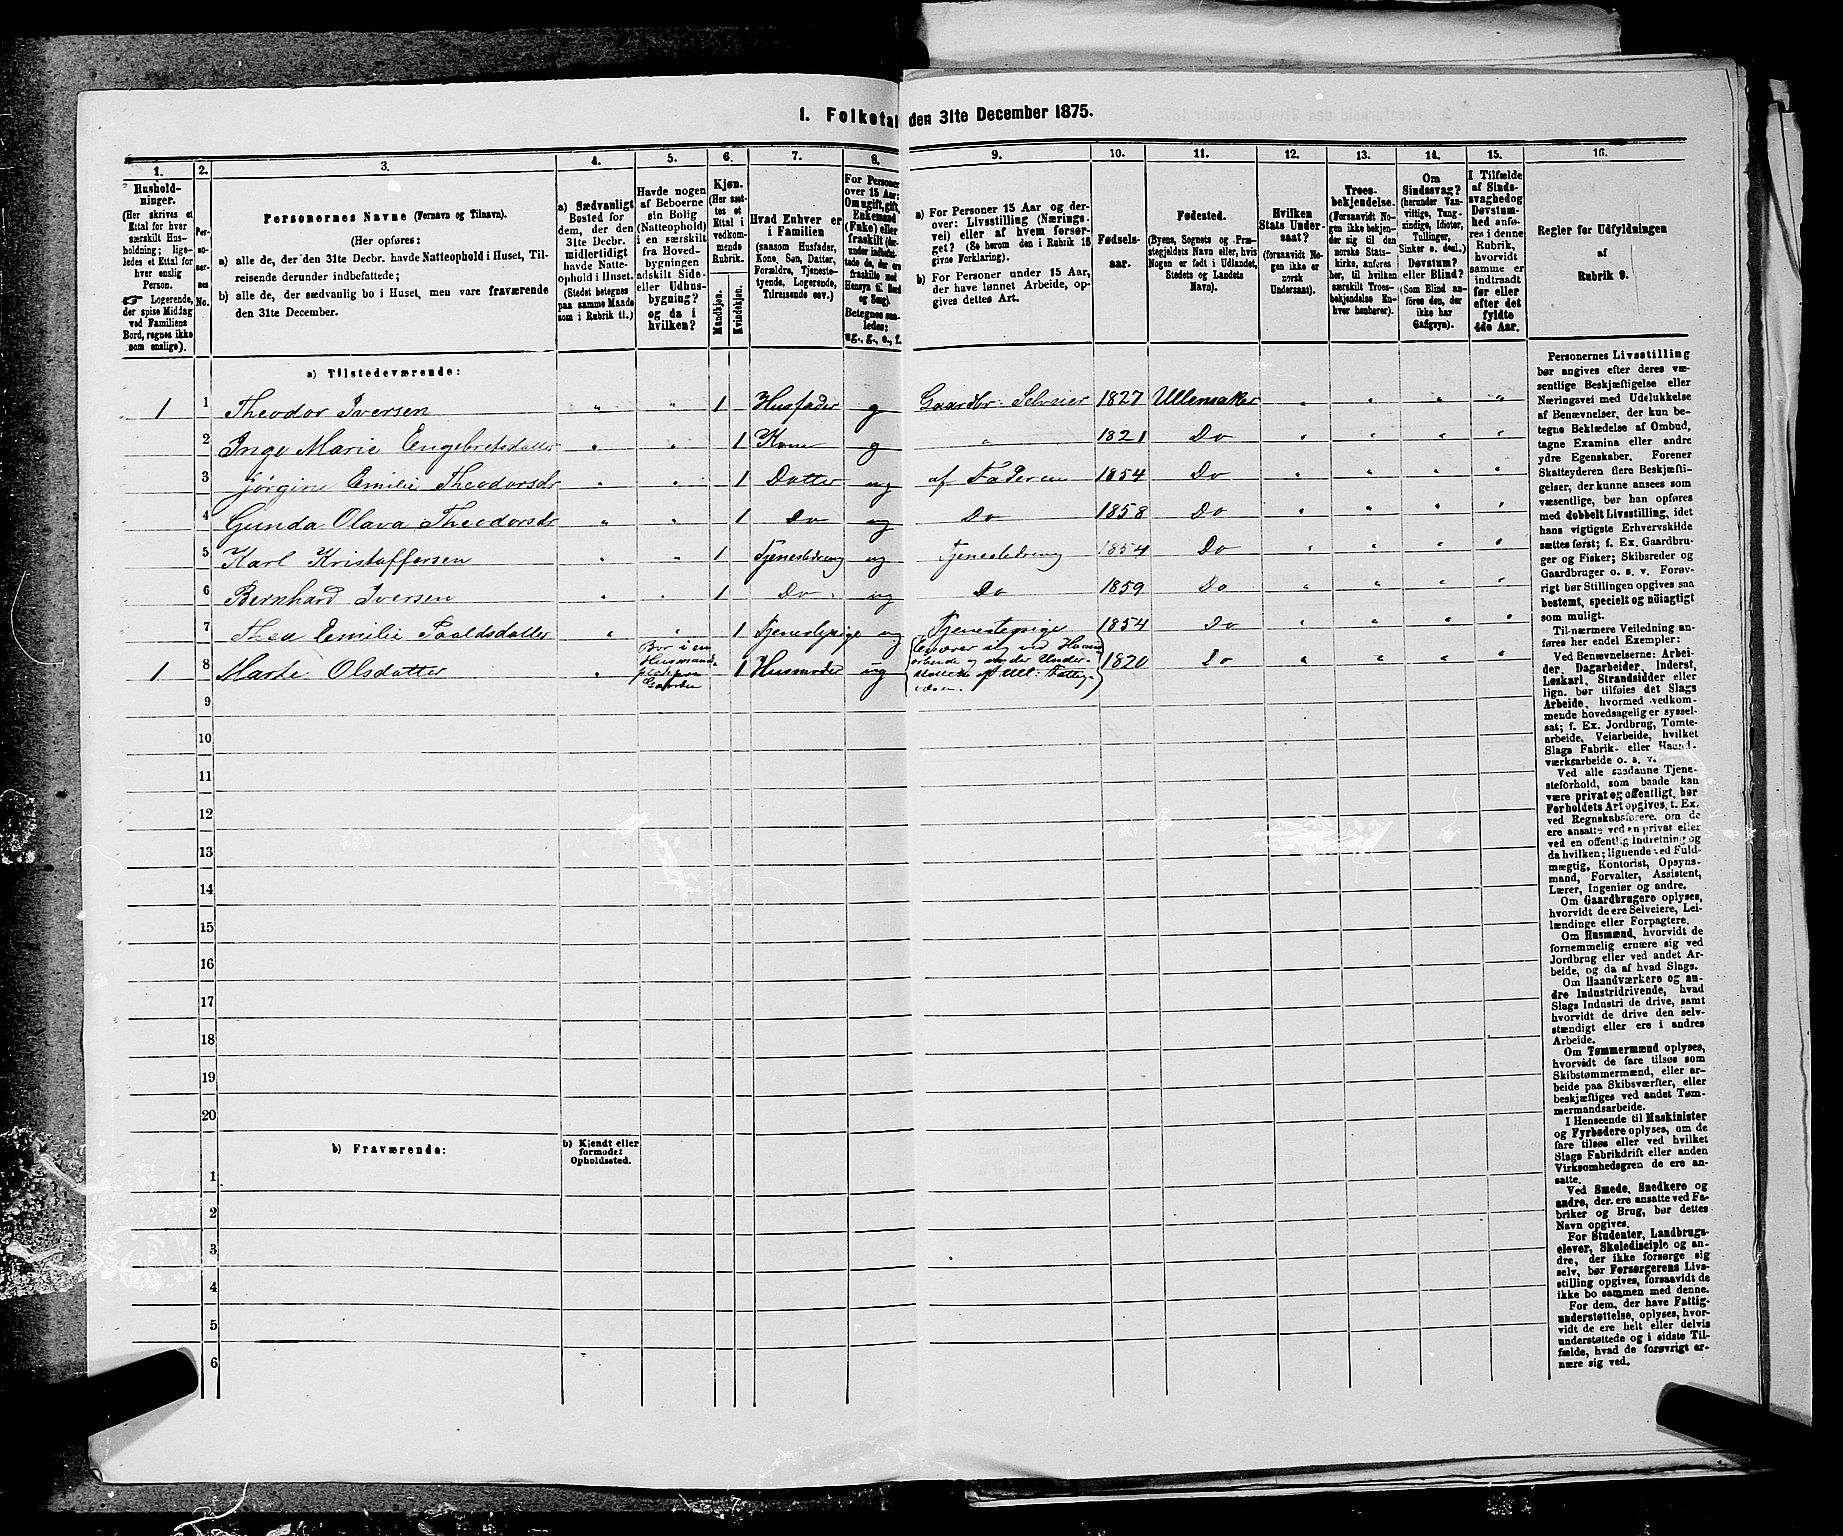 I. Folketal den 31te December 1875.
1.
Hushold-
ninger.
(Her skrives et
Ettal for hver
særskilt Hus-
holdning; lige-
ledes et Ettal for
hver enslig
Person.
Logerende,
der spise Middag
ved Familiens
Bord, regnes ikke
som enslige).
2.
Per-
so-
ner-
nes
No.
3.
Personernes Navne (Fornavn og Tilnavn).
(Her opføres:
a) alle de, der den 31te Decbr. havde Natteophold i Huset, Til-
reisende derunder indbefattede;
b) alle de, der sædvanlig bo i Huset, men vare fraværende
den 31te December.
4.
a) Sædvanligt
Bosted for
dem, der den
31te Decbr.
midlertidigt
havde Natte-
ophold i Huset.
(Stedet betegnes
paa samme Maade
som i Rubrik 11.)
5.
Havde nogen
af Beboerne
sin Bolig
(Natteophold)
i en særskilt
fra Hoved-
bygningen
adskilt Side-
eller Udhus-
bygning?
og da i
hvilken?
6.
Kjøn.
(Her sæt-
tes et
Ettal i
vedkom-
mende
Rubrik.
Mandkjøn.
Kvindekjøn.
7.
Hvad Enhver er
i Familien
(saasom Husfader,
Kone, Søn, Datter,
Forældre, Tjeneste-
tyende, Logerende,
Tilreisende osv.)
8.
For Personer
over 15 Aar:
Om ugift, gift,
Enkemand
(Enke) eller
fraskilt
Hensyn til Bord
og Seng).
Betegnes saa-
ledes:
ug., g., e., f.
9.
a) For Personer 15 Aar og der-
over: Livsstilling (Nærings-
vei) eller af hvem forsør-
get? (Se herom den i Rubrik 16
givne Forklaring).
b) For Personer under 15 Aar,
der have lønnet Arbeide, op-
gives dettes Art.
10.
Fødsels-
aar.
11.
Fødested.
(Byens, Sognets og Præ-
stegjeldets Navn eller, hvis
Nogen er født i Udlandet,
Stedets og Landets
Navn).
12.
Hvilken
Stats Under-
saat?
(forsaavidt No-
gen ikke er
norsk
Undersaat).
13.
Troes-
bekjendelse.
(Forsaavidt No-
gen ikke bekjen-
der sig til den
norske Stats-
kirke, anføres
her, til hvilken
særskilt Troes-
bekjendelse En-
hver henhører).
14.
Om
Sindssvag?
(herunder Van-
vittige, Tung-
sindige, Idioter,
Tullinger,
Sinker o. desl.)
Døvstum?
eller Blind?
(Som Blind an-
føres den, der
ikke har
Gangsyn).
15.
I Tilfælde
af Sinds-
svaghed og
Døvstum-
hed anfø-
res i denne
Rubrik,
hvorvidt
samme er
indtraadt
før eller
efter det
fyldte
4de Aar.
16.
Regler for Udfyldningen
af
Rubrik 9.
a) Tilstedeværende:
1 1 Theodor Iversen " " 1 Husfader g Gaardbr. Selveier 1827 Ullensaker " " " "
2 Inge Marie Engebretsdatter " " 1 Kone g " 1821 Do " " " "
3 Jørgine Emilie Theodorsdr " " 1 Datter ug af Faderen 1854 Do " " " "
4 Gunda Olava Theodorsdr " " 1 Do ug Do 1858 Do " " " "
5 Karl Kristoffersen " " 1 Tjenestedreng ug Tjenestedreng 1854 Do " " " "
6 Bernhard Iversen " " 1 Do ug Do 1859 Do " " " "
7 Thea Emilie Paalsdatter " " 1 Tjenestepige ug Tjenestepige 1854 Do " " " "
1 8 Marte Olsdatter " Bor i en
Husmands
plads paa
Gaarden 1 Husmoder ug Ernærer sig ved Haand
arbeide og nyder Under-
støttelse af Ull: Fattig-
væsen. 1820 Do " " " "
9
10
11
12
13
14
15
16
17
18
19
20
b) Fraværende:
b) Kjendt eller
formodet
Opholdssted.
1
2
3
4
5
6
Personernes Livsstilling
bør angives efter deres væ-
sentlige Beskjæftigelse eller
Næringsvei med Udelukkelse
af Benævnelser, der kun be-
tegne Beklædelse af Ombud,
tagne Examina eller andre
ydre Egenskaber. Forener
Skatteyderen flere Beskjæfti-
gelser, der kunne ansees som
væsentlige, bør han opføres
med dobbelt Livsstilling, idet
hans vigtigste Erhvervskilde
sættes først; f. Ex. Gaardbru-
ger og Fisker; Skibsreder og
Gaardbruger o. s. v. Forøv-
rigt bør Stillingen opgives saa
bestemt, specielt og nøiagtigt
som muligt.
Til nærmere Veiledning an-
føres her endel Exempler:
Ved Benævnelserne: Arbei-
der, Dagarbeider, Inderst,
Løskarl, Strandsidder eller
lign. bør tilføies det Slags
Arbeide, hvormed vedkom-
mende hovedsagelig er syssel-
sat; f. Ex. Jordbrug, Tømte-
arbeide, Veiarbeide, hvilket
Slags Fabrik- eller Haand-
værksarbeide o. s. v.
Ved alle saadanne Tjene-
steforhold, som baade kan
være privat og offentligt, bør
Forholdets Art opgives, t. Ex.
ved Regnskabsførere, om de
ere ansatte ved en privat eller
ved en offentlig Indretning og
da hvilken; lignende ved Fuld-
mægtig, Kontorist, Opsyns-
mand, Forvalter, Assistent,
Lærer, Ingeniør og andre.
Om Gaardbrugere oplyses,
hvorvidt de ere Selveiere, Lei-
lændinge eller Forpagtere.
Om Husmænd, hvorvidt de
fornemmelig ernære sig ved
Jordbrug eller ved andet Ar-
beide, og da af hvad Slags.
Om Haandværkere og an-
dre Industridrivende, hvad
Slags Industri de drive, samt
hvorvidt de drive den selv-
stændigt eller ere i andres
Arbeide.
Om Tømmermænd oplyses,
hvorvidt de fare tilsøs som
Skibstømmermænd, eller ar-
beide paa Skibsværfter, eller
beskjæftiges ved andet Tøm-
mermandsarbeide.
I Henseende til Maskinister
og Fyrbødere oplyses, om de
fare tilsøs eller ved hvilket
Slags Fabrikdrift eller anden
Virksomhedsgren de ere an-
satte.
Ved Smede, Snedkere og
andre, der ere ansatte ved Fa-
briker og Brug, bør dettes
Navn opgives.
For Studenter, Landbrugs-
elever, Skoledisciple og an-
dre, der ikke forsørge sig
selv, bør Forsørgerens Livs-
stilling opgives, forsaavidt de
ikke bo sammen med denne.
For dem, der have Fattig-
understøttelse, oplyses, hvor-
vidt de ere helt eller delvis
understøttede og i sidste Til-
fælde, hvad de forøvrigt er-
nære sig ved.